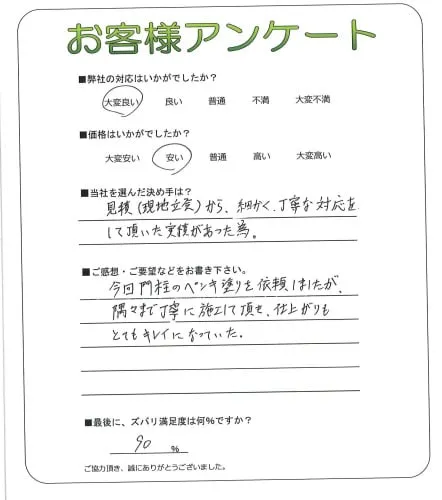 お客様アンケート
■弊社の対応はいかがでしたか?
大変良い 良い 普通 不満 大変不満
■価格はいかがでしたか?
大変安い 安い 普通 高い 大変高い
■当社を選んだ決め手は?
見積(現地立会)から、細かく、丁寧な対応を
して頂いた実績があった為。
■ご感想・ご要望などをお書き下さい。
今回門柱のペンキ塗りを依頼しましたが、
隅々まで丁寧に施工して頂き、仕上がりも
とてもキレイになっていた。
■最後に、ズバリ満足度は何%ですか?
90 %
ご協力頂き、誠にありがとうございました。